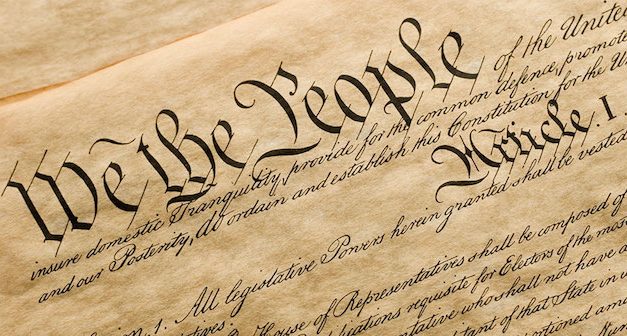 We the People of the United
insure domestic Tranquility, provide for the common defence, promote
and our Posterity, do ordain and establish this Constitution for the U
Article. I.
1. All legislative Powers herein granted shall be vested
House of Representatives shall be composed of
requisite for Electors of the most
Representative who shall not have a
of that State in